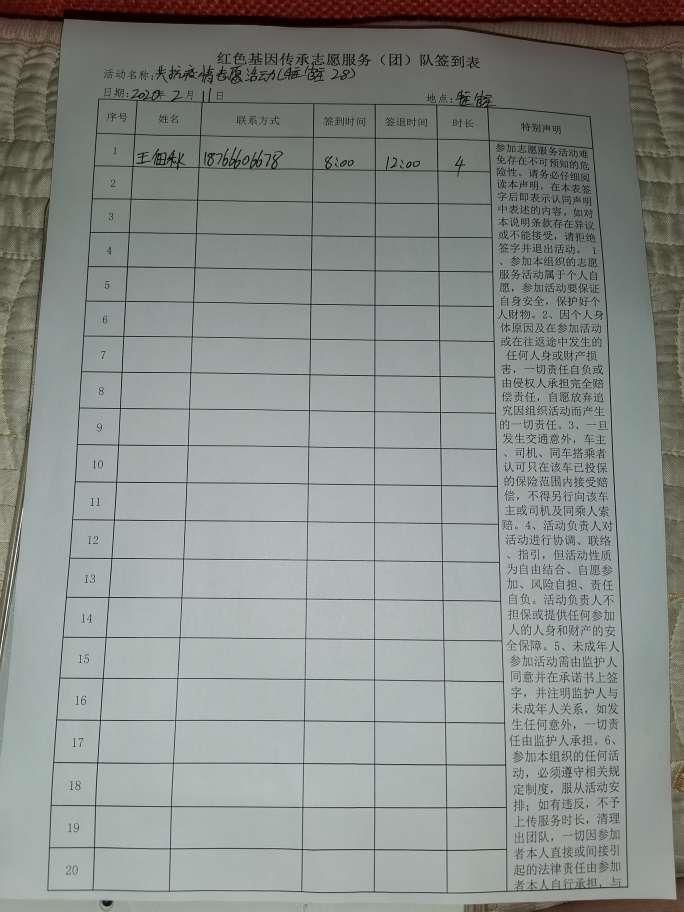 红色基因传承志愿服务（团）队签到表
活动名称：共抗疫情志愿活动 28）
日期：2020年2月11日
地点：
序号 姓名 联系方式 签到时间 签退时间 时长 特别声明
1 王 秋 18766606678 8:00 12:00 4
2
3
4
5
6
7
8
9
10
11
12
13
14
15
16
17
18
19
20
参加志愿服务活动难
免存在不可预知的危
险性，请务必仔细阅
读本声明，在本表签
字后即表示认同声明
中表述的内容，如对
本说明条款存在异议
或不能接受，请拒绝
签字并退出活动。 1
、参加本组织的志愿
服务活动属于个人自
愿，参加活动要保证
自身安全，保护好个
人财物。2、因个人身
体原因及在参加活动
或在往返途中发生的
任何人身或财产损
害，一切责任自负或
由侵权人承担完全赔
偿责任，自愿放弃追
究因组织活动而产生
的一切责任。3、一旦
发生交通意外，车主
、司机、同车搭乘者
认可只在该车已投保
的保险范围内接受赔
偿，不得另行向该车
主或司机及同乘人索
赔。4、活动负责人对
活动进行协调、联络
、指引，但活动性质
为自由结合、自愿参
加、风险自担、责任
自负。活动负责人不
担保或提供任何参加
人的人身和财产的安
全保障。5、未成年人
参加活动需由监护人
同意并在承诺书上签
字，并注明监护人与
未成年人关系，如发
生任何意外，一切责
任由监护人承担。6、
参加本组织的任何活
动，必须遵守相关规
定制度，服从活动安
排；如有违反，不予
上传服务时长，清理
出团队，一切因参加
者本人直接或间接引
起的法律责任由参加
者本人自行承担，与